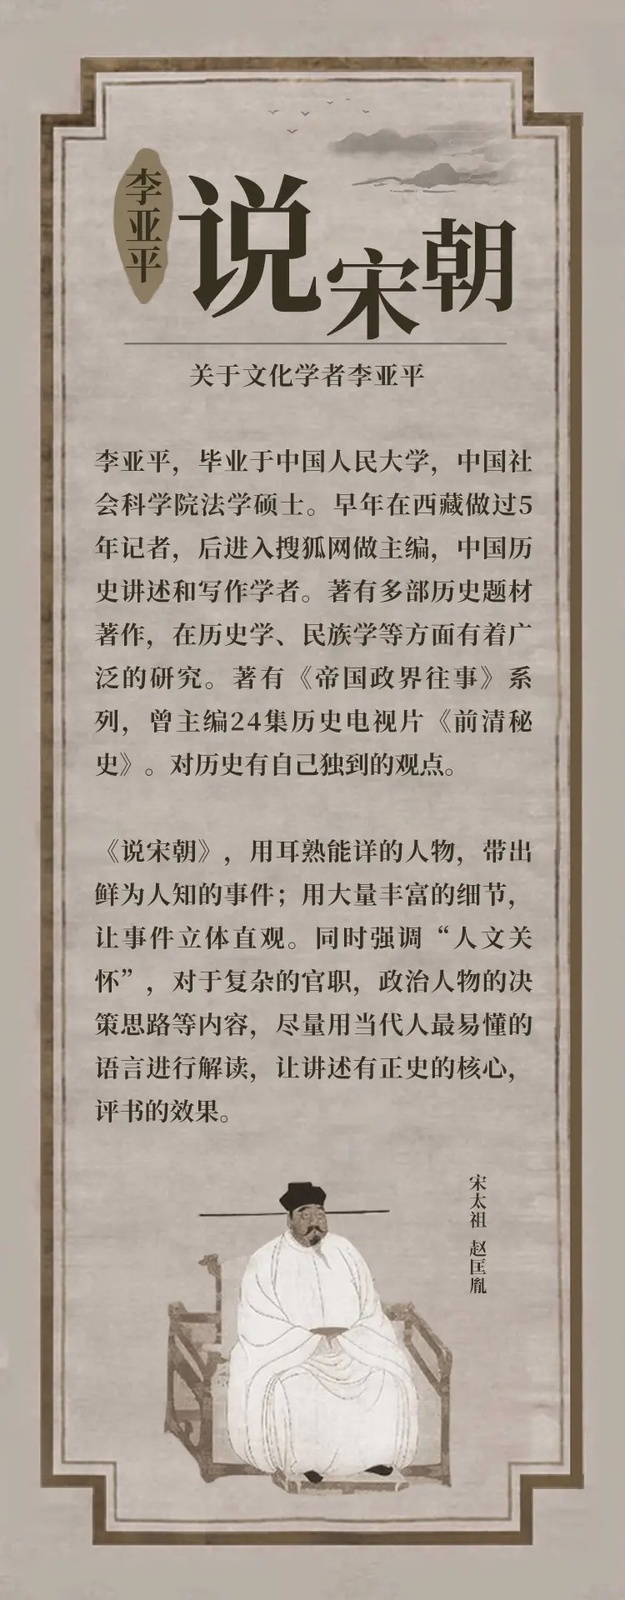 李亚平
说宋朝
关于文化学者李亚平
李亚平，毕业于中国人民大学，中国社
会科学院法学硕士。早年在西藏做过5
年记者，后进入搜狐网做主编，中国历
史讲述和写作学者。著有多部历史题材
著作，在历史学、民族学等方面有着广
泛的研究。著有《帝国政界往事》系
列，曾主编24集历史电视片《前清秘
史》。对历史有自己独到的观点。
《说宋朝》，用耳熟能详的人物，带出
鲜为人知的事件；用大量丰富的细节，
让事件立体直观。同时强调“人文关
怀”，对于复杂的官职，政治人物的决
策思路等内容，尽量用当代人最易懂的
语言进行解读，让讲述有正史的核心，
评书的效果。
宋太祖 赵匡胤